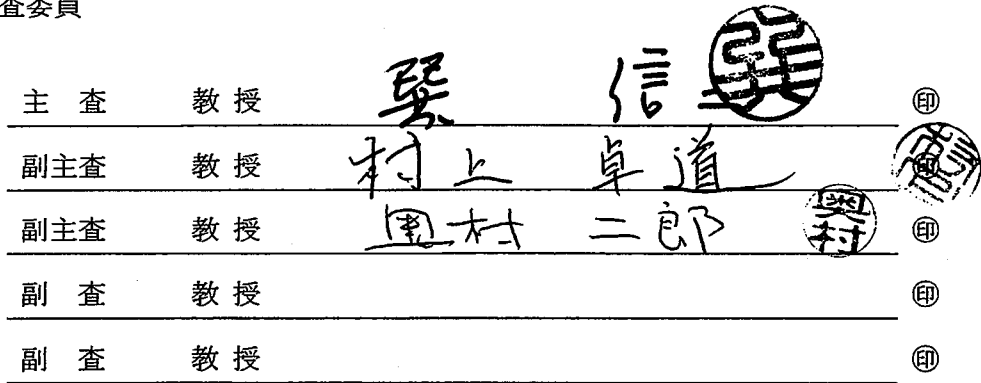 査委員
主 査 教 授 巽 信二 巽 ㊞
副主査 教 授 村上 卓道 ㊞
副主査 教 授 奥村 二郎 奥村 ㊞
副 査 教 授 ㊞
副 査 教 授 ㊞